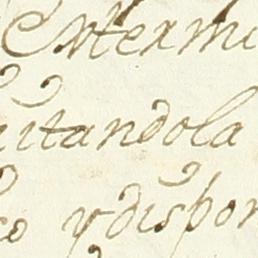 Entermi
uitandola
co y dispon